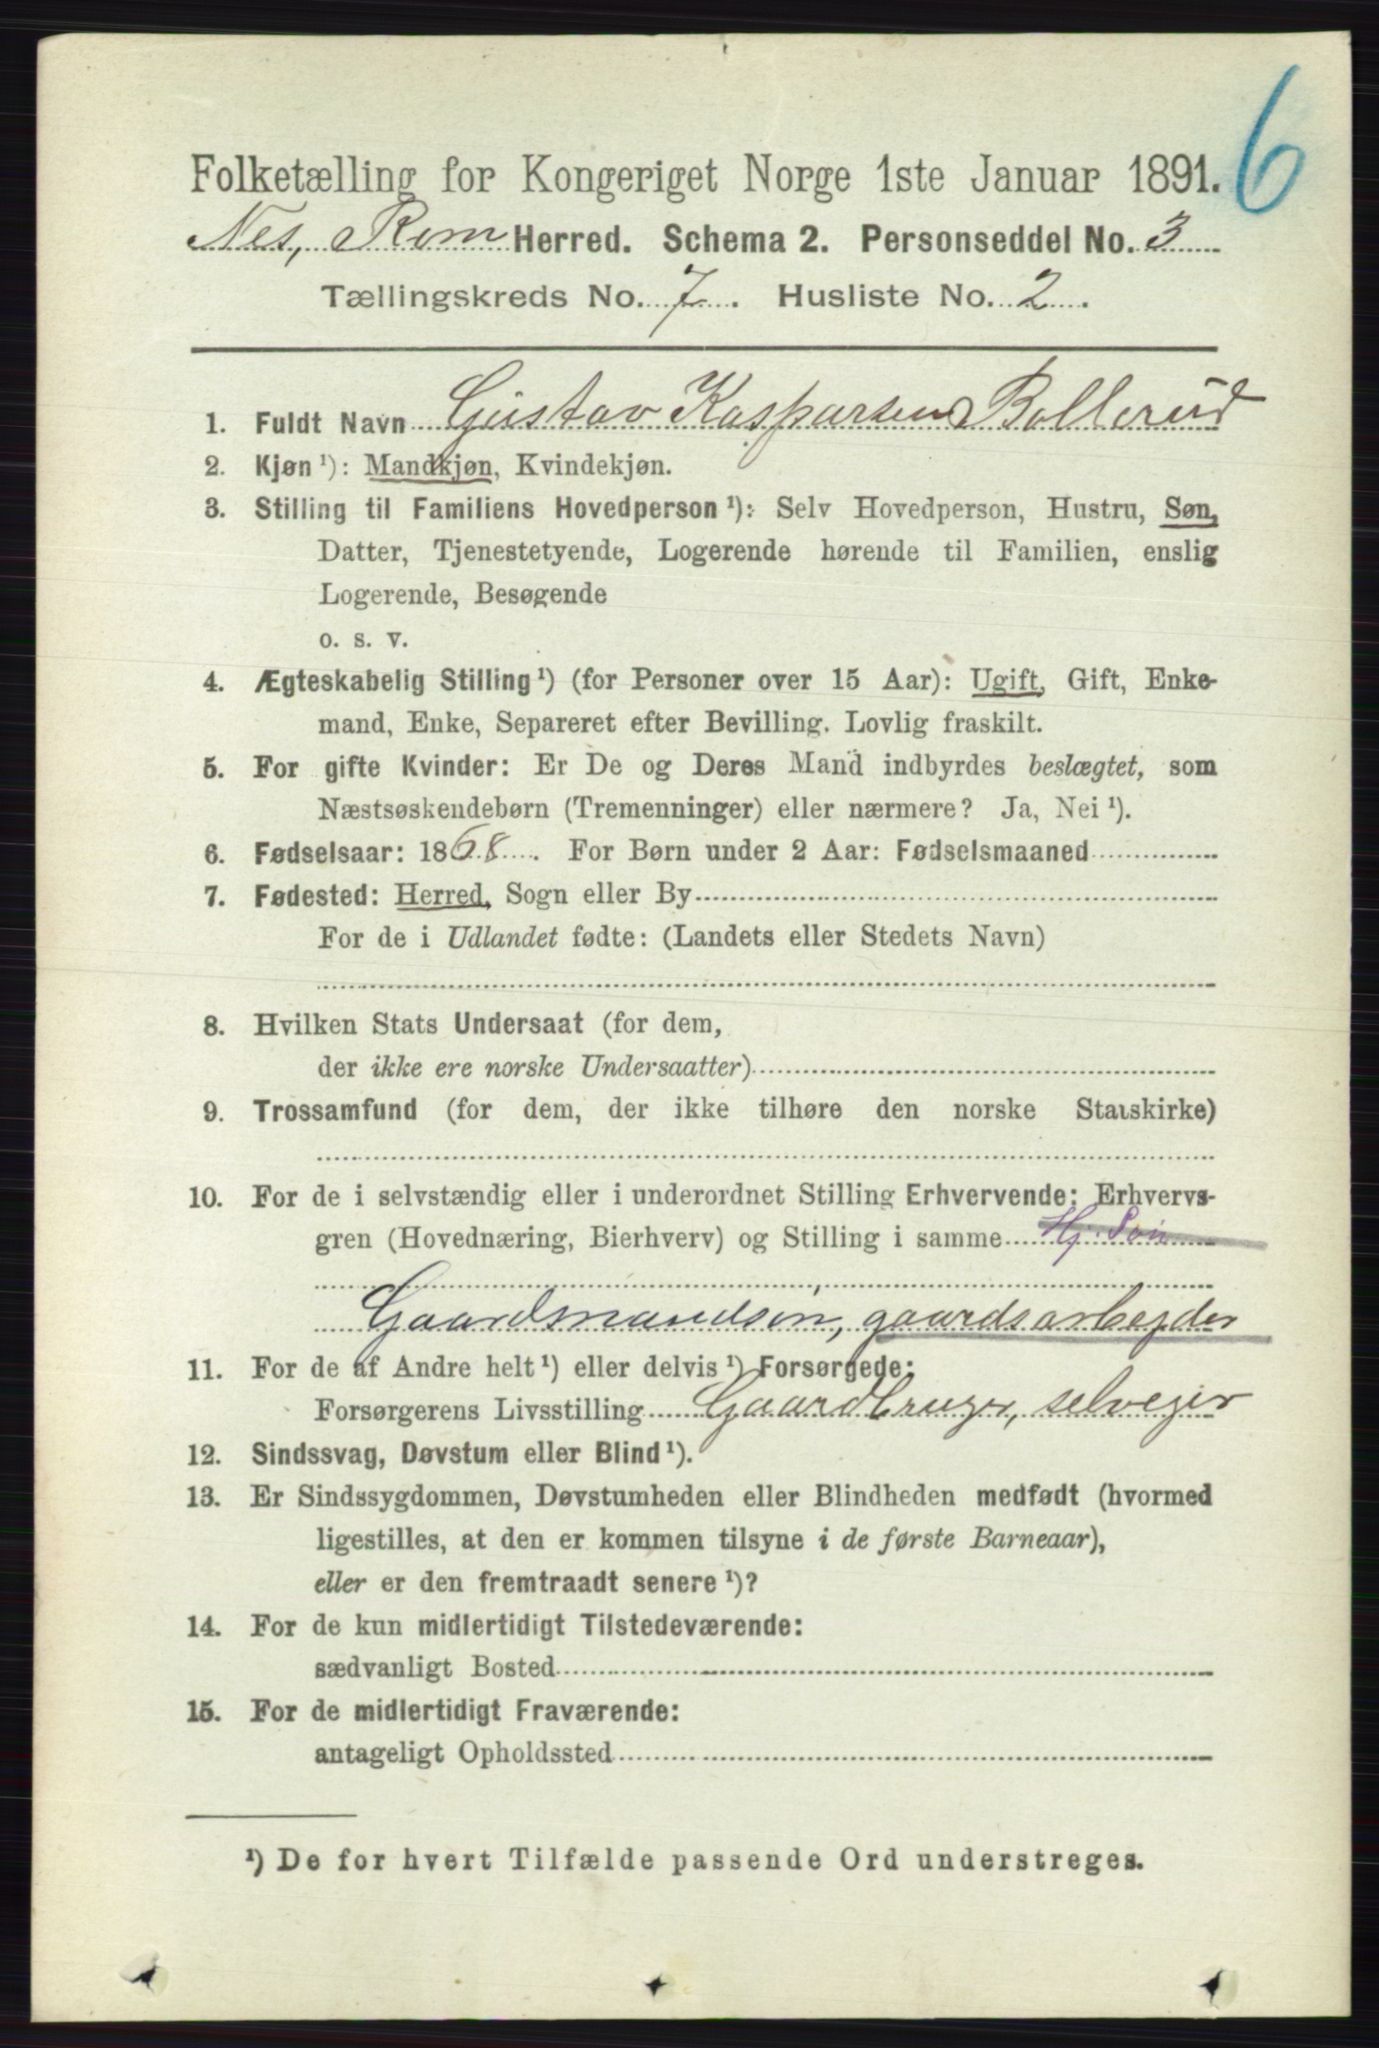 6
Folketælling for Kongeriget Norge 1ste Januar 1891.
Nes, Rom Herred. Schema 2. Personseddel No. 3
Tællingskreds No. 7. Husliste No. 2.
1. Fuldt Navn Gustav Kasparsen Bollerud
2. Kjøn ¹): Mandkjøn, Kvindekjøn.
3. Stilling til Familiens Hovedperson ¹): Selv Hovedperson, Hustru, Søn,
Datter, Tjenestetyende, Logerende hørende til Familien, enslig
Logerende, Besøgende
o. s. v.
4. Ægteskabelig Stilling ¹) (for Personer over 15 Aar): Ugift, Gift, Enke-
mand, Enke, Separeret efter Bevilling. Lovlig fraskilt.
5. For gifte Kvinder: Er De og Deres Mand indbyrdes beslægtet, som
Næstsøskendebørn (Tremenninger) eller nærmere? Ja, Nei ¹).
6. Fødselsaar: 1868. For Børn under 2 Aar: Fødselsmaaned
7. Fødested: Herred, Sogn eller By
For de i Udlandet fødte: (Landets eller Stedets Navn)
8. Hvilken Stats Undersaat (for dem,
der ikke ere norske Undersaatter)
9. Trossamfund (for dem, der ikke tilhøre den norske Statskirke)
10. For de i selvstændig eller i underordnet Stilling Erhvervende: Erhvervs-
gren (Hovednæring, Bierhverv) og Stilling i samme Hj. Søn
Gaardmandsøn, gaardsarbejder
11. For de af Andre helt ¹) eller delvis ¹) Forsørgede:
Forsørgerens Livsstilling Gaardbruger, selvejer
12. Sindssvag, Døvstum eller Blind ¹).
13. Er Sindssygdommen, Døvstumheden eller Blindheden medfødt (hvormed
ligestilles, at den er kommen tilsyne i de første Barneaar),
eller er den fremtraadt senere ¹)?
14. For de kun midlertidigt Tilstedeværende:
sædvanligt Bosted
15. For de midlertidigt Fraværende:
antageligt Opholdssted
¹) De for hvert Tilfælde passende Ord understreges.